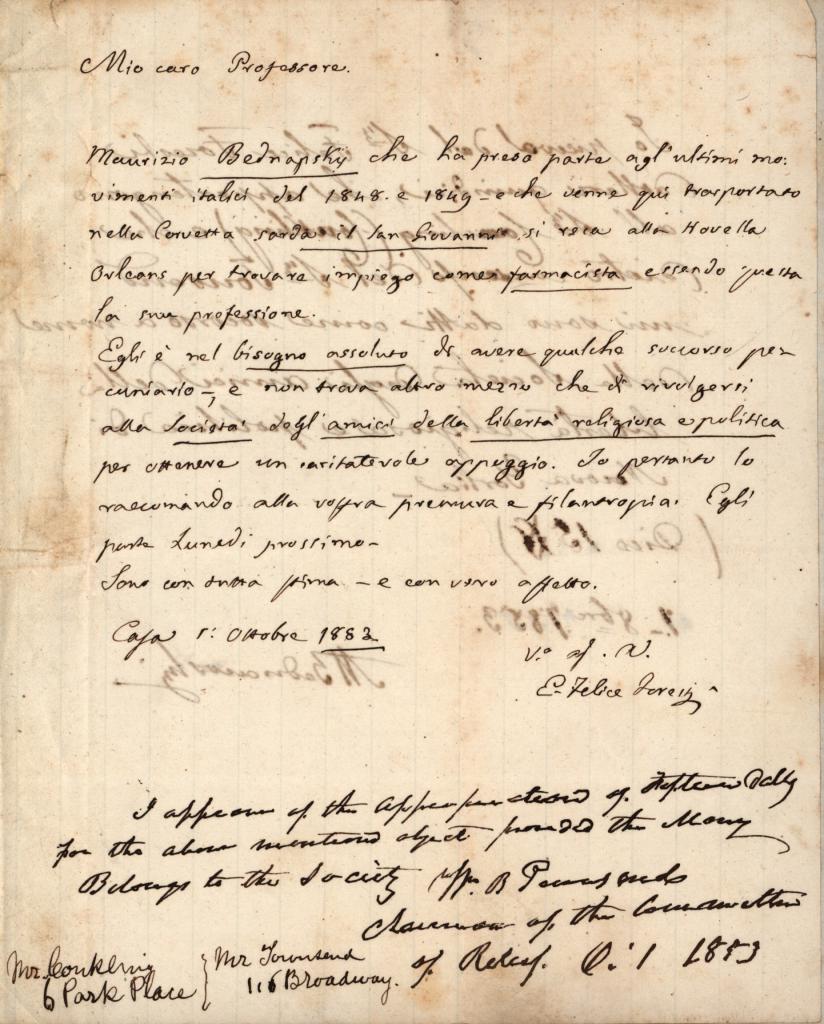 Mio caro Professore.
Maurizio Bednapsky che ha preso parte agl'ultimi mo:
vimenti italici del 1848. e 1849 – e che venne qui trasportato
nella Corvetta sarda il San Giovanni si reca alla Novella
Orleans per trovare impiego come farmacista essendo questa
la sua professione.
Egli è nel bisogno assoluto di avere qualche soccorso pe-
cuniario –, e non trova altro mezzo che di rivolgersi
alla Società degl'amici della libertà religiosa e politica
per ottenere un caritatevole appoggio. Io pertanto lo
raccomando alla vostra premura e filantropia. Egli
parte Lunedì prossimo –
Sono con tutta stima – e con vero affetto.
Casa 1: Ottobre 1853
V.o af. 
E. Felice Foresti
I approve of the appropriation of fifteen Dolls
for the above mentioned object provided the Money
Belongs to the Society Wm B Townsend
Chairman of the Committee
of Relief. O: 1 1853
Mr. Conkling
6 Park Place
Mr Townsend
116 Broadway.